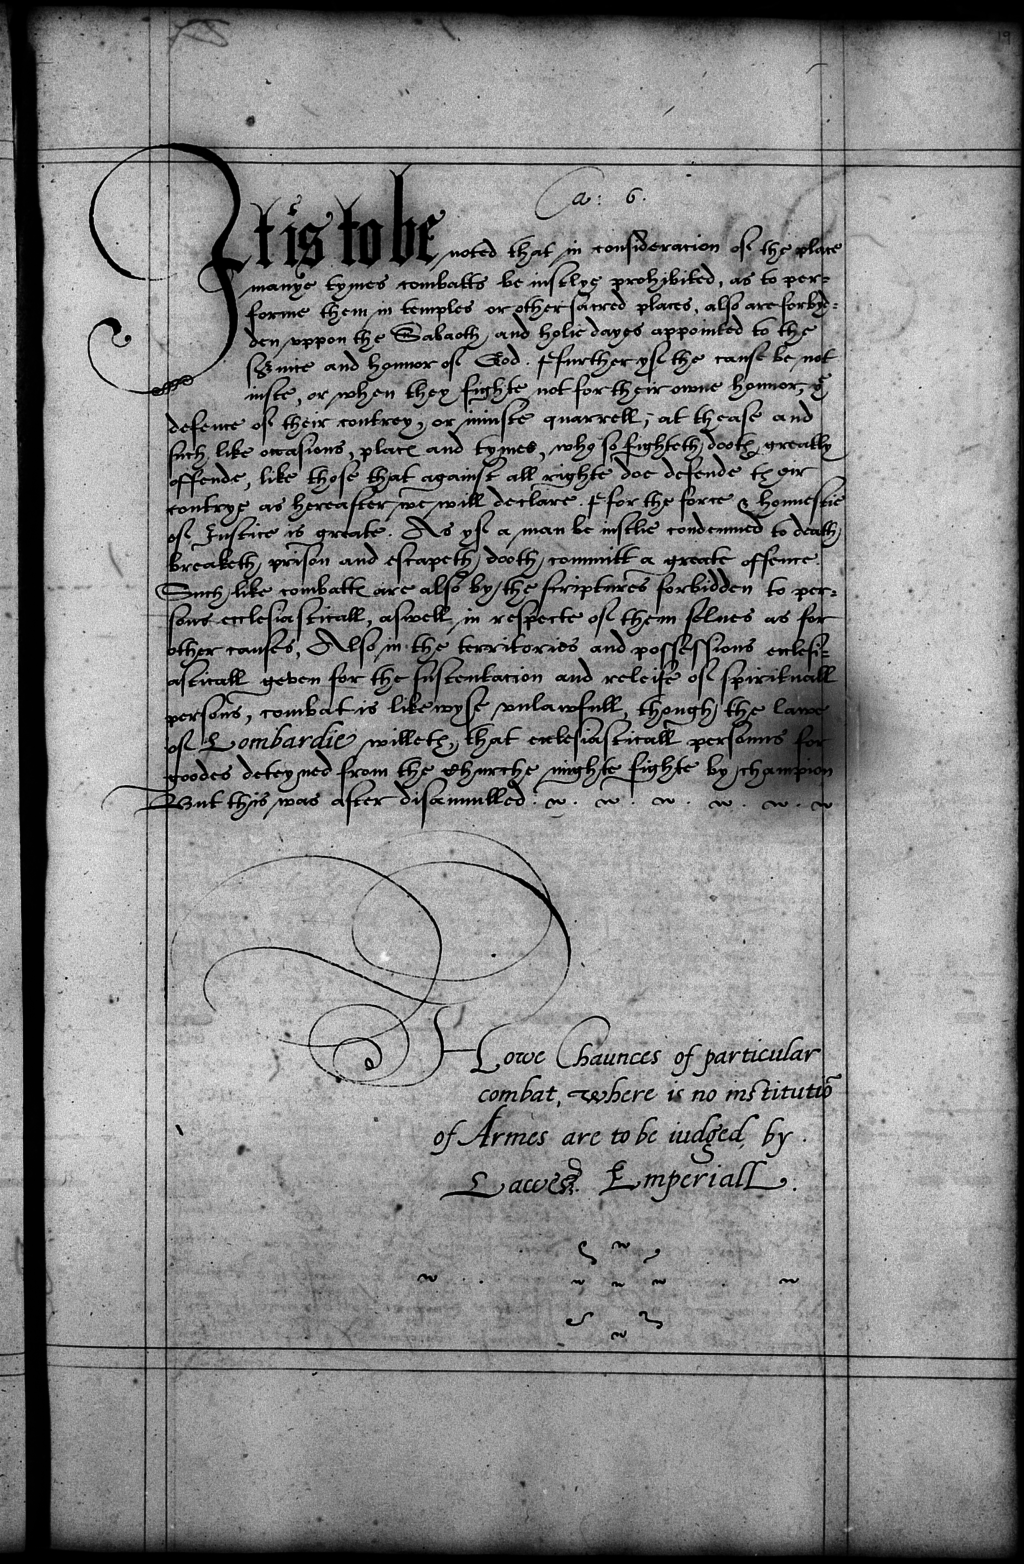 19
Ca: 6.
It is to be noted that in consideracion of the place
manye tymes combatts be iustlye prohibited, as to per-
forme them in temples or other sacred places, also are forbyd-
den vppon the Sabaoth, and holie dayes appointed to the
seruice and honnor of God. ffurther yf the cause be not
iuste, or when they fighte not for their owne honnor, &
defence of their contrey, or iniuste quarrell; at thease and
such, like occasions, places and tymes, who so fighteth, dooth, greatly
offende, like those that against all righte doe defende their
contrye as hereafter we will declare. ffor the force & honnestie
of Justice is greate. As yf a man be iustlie condemned to death,
breaketh, prison and escapeth, dooth, committ a greate offence.
Such, like combattes are also by, the scriptures forbidden to per-
sons ecclesiasticall, aswell, in respecte of them selues as for
other causes, Also in the territories and possessions ecclesi-
asticall geven for the sustentacion and releife of spirituall
persons, combat is likewyse vnlawfull, though, the lawe
of Lombardie willeth, that ecclesiasticall persouns for
goodes deteyned from the Churche mighte fighte by champion
But this was after disannulled.
Howe Chaunces of particular
combat, where is no institutiō
of Armes are to be iudged, by.
Lawes Emperiall.